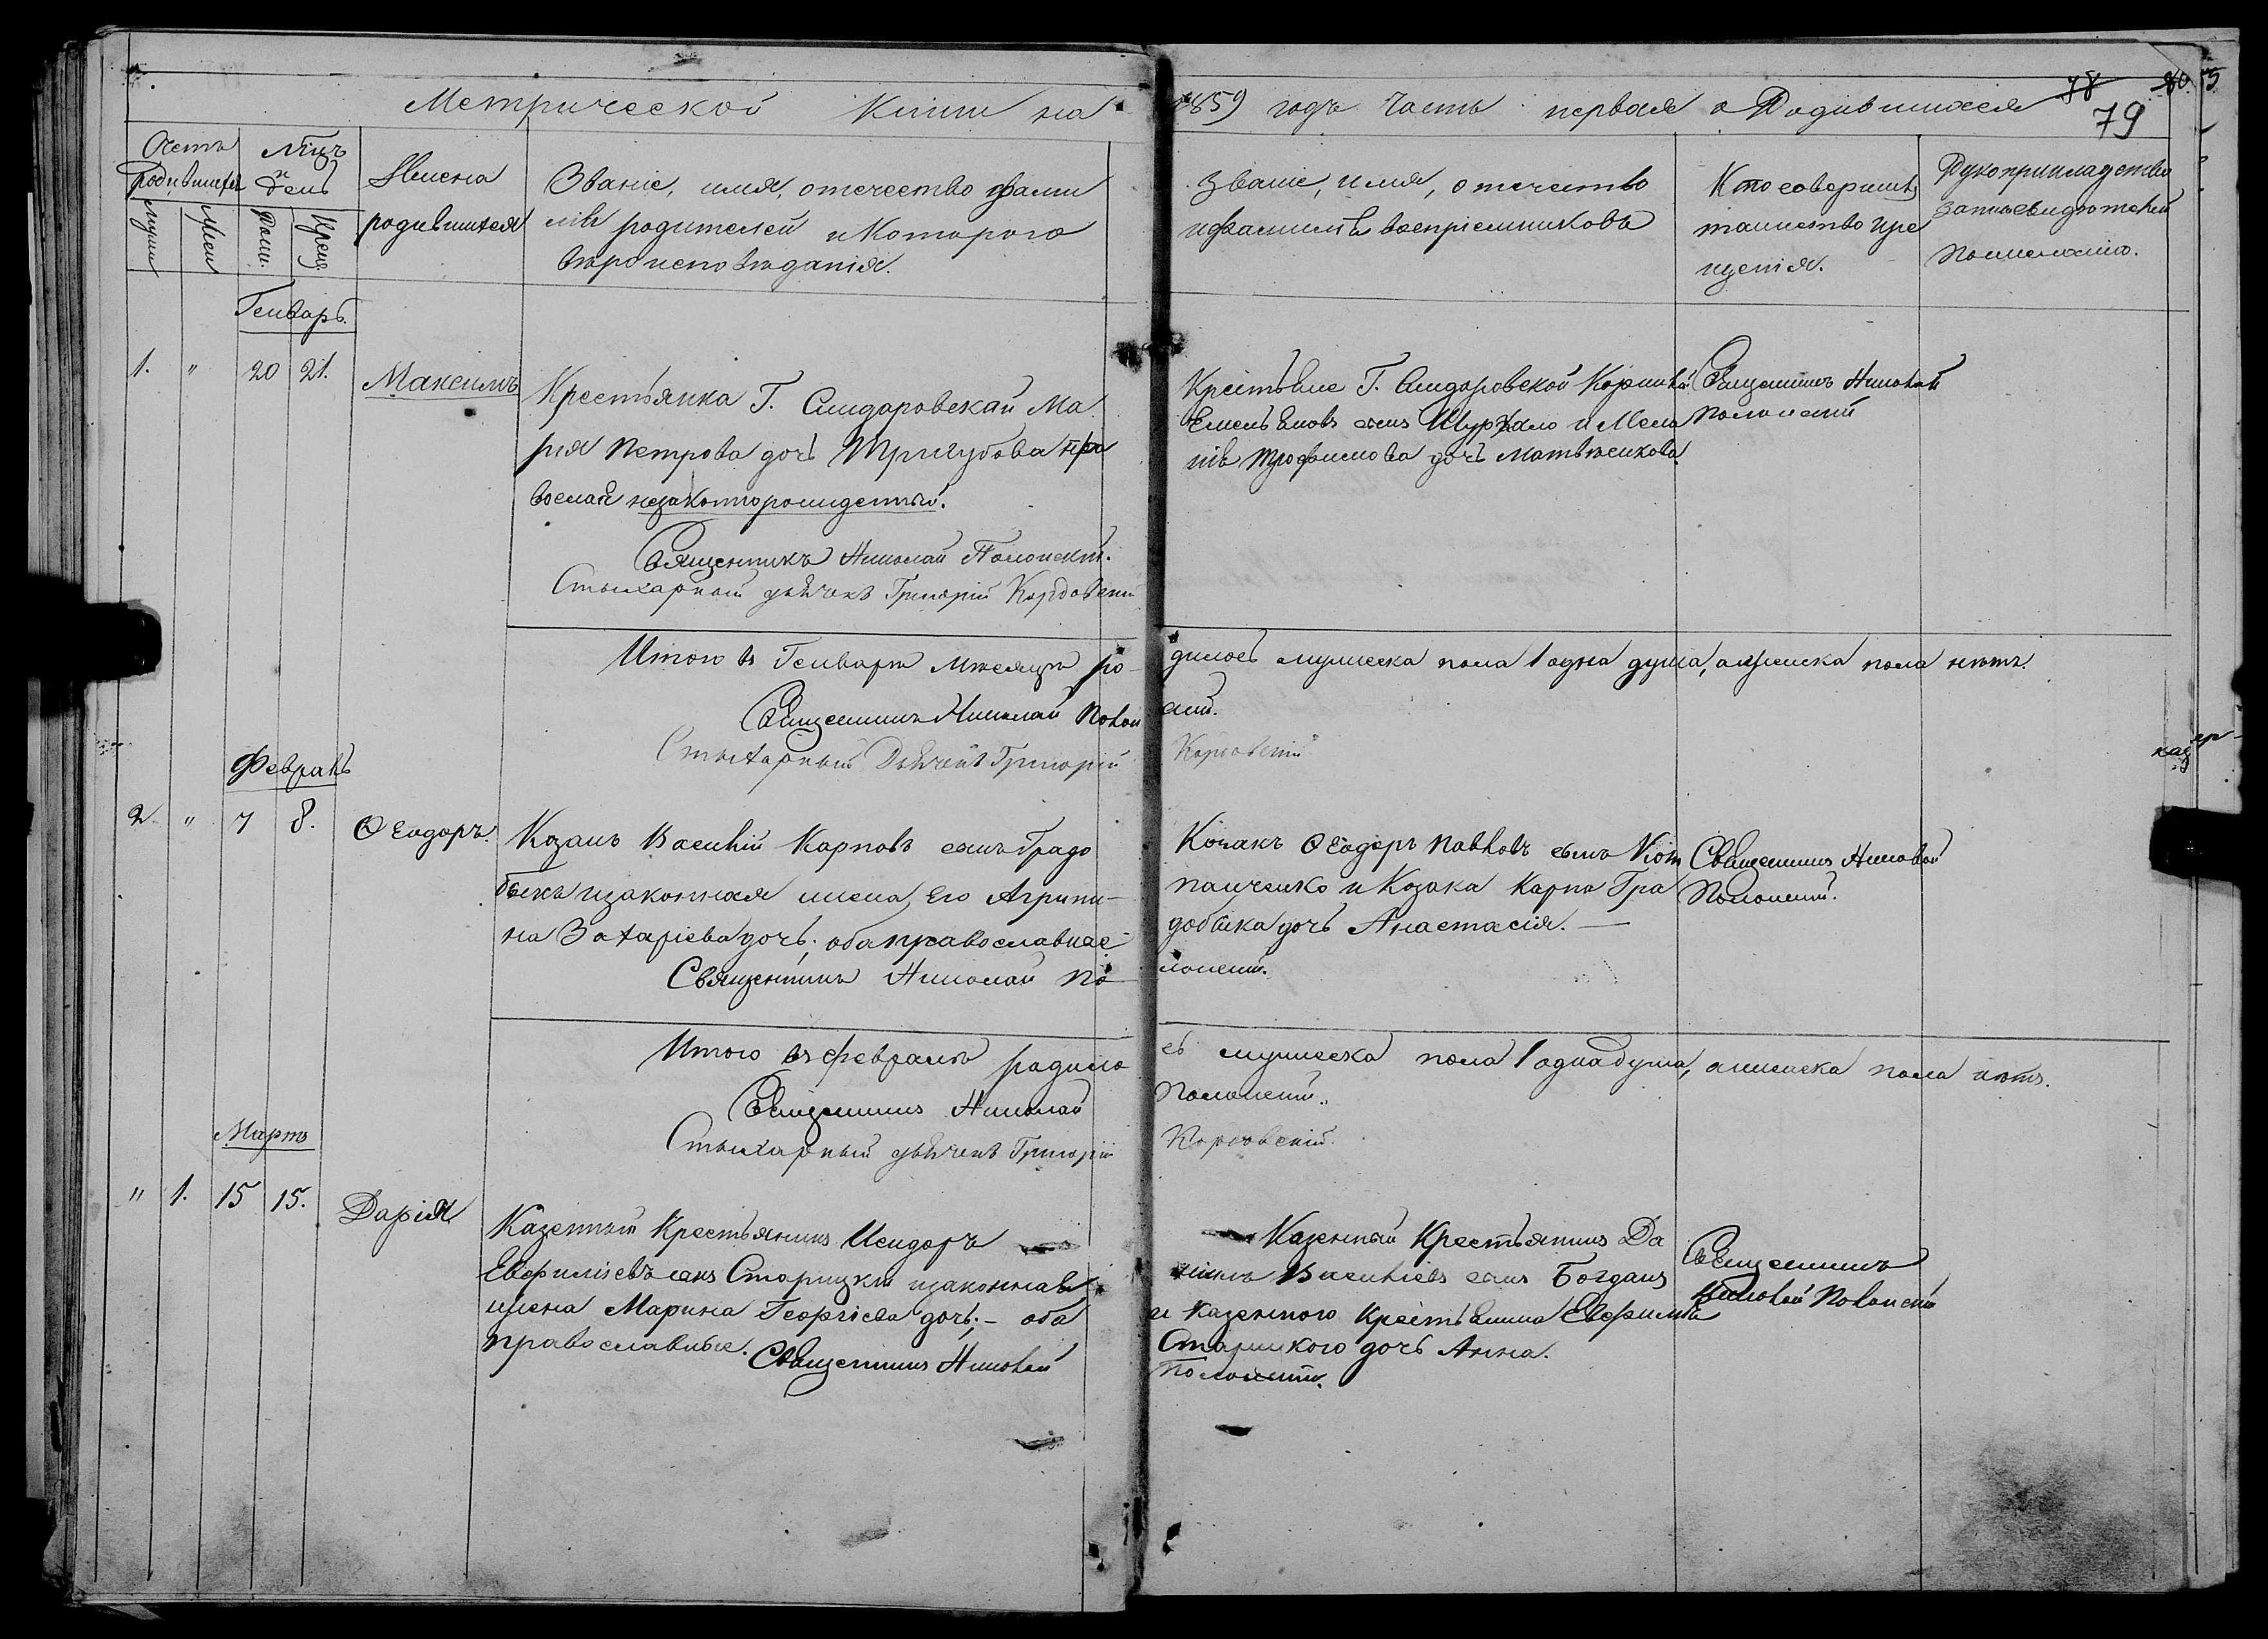 Метрической Книги на 1859 годъ часть первая о Родившихся
78 80.
79
Счетъ родившихся
Мцъ и день
Имена родившихся
Званіе, имя, отечество и фами
лія родителей и Котораго
вѣроисповѣданія.
Званіе, имя, отечество
и фамилія воспріемниковъ
Кто совершилъ
таинство кре
щенія.
Рукоприкладство
записи свидѣтелей
по желанію.
Генварь.
1. " 20 21. Максимъ
Крестьянка Г. Ма
рія Петрова дочь Тригубова пра
вославная незаконнорожденный.
Священникъ Николай Полонскій.
Стыхарный дьячекъ Григорій
Крестьяне Г.
Емельяновъ сынъ и Мела
нія Трофимова дочь Матвѣенкова
Священникъ Николай
Полонскій
Итого въ Генварѣ мѣсяцѣ ро-
дилось мужеска пола 1 одна душа, а женска пола нѣтъ.
Священникъ Николай Полон
скій.
Стыхарный Дьячекъ Григорій
Февраль
2 " 7 8. Ѳеодоръ.
Козакъ Василій Карповъ сынъ Градо
быкъ и законная жена его Агрипи-
на Захаріева дочь; оба православные
Священникъ Николай По
лонскій.
Козакъ Ѳеодоръ Павловъ сынъ
и Козака Карпа Гра
добыка дочь Анастасія. —
Священникъ Николай
Полонскій.
Итого въ февралѣ родило
сь мужеска пола 1 одна душа, а женска пола нѣтъ.
Священникъ Николай
Полонскій.
Стыхарный дьячекъ Григорій
Мартъ
" 1. 15 15. Дарія
Казенный Крестьянинъ Исидоръ
Евфиміевъ сынъ Старицкій и законная
жена Марина Георгіева дочь; - оба
православные. Священникъ Николай
Казенный Крестьянинъ Да
ніилъ Василіевъ сынъ Богданъ
и казенного Крестьянина Евфимія
Старицкого дочь Анна.
Полонскій.
Священникъ
Николай Полонскій